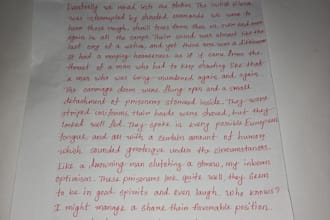 Eventually we moved into the station. The initial silence
was interrupted by shouted commands. We were to
hear those rough, shrill tones from then on, over and over
again in all the camps. Their sound was almost like the
last cry of a victim, and yet there was a difference.
It had a rasping hoarseness, as if it came from the
throat of a man who had to keep shouting like that
a man who was being murdered again and again.
The carriage doors were flung open and a small
detachment of prisoners stormed inside. They wore
striped uniforms, their heads were shaved, but they
looked well fed. They spoke in every possible European
tongue, and all with a certain amount of humour,
which sounded grotesque under the circumstances.
Like a drowning man clutching a straw, my inborn
optimism. These prisoners look quite well, they seem
to be in good spirits and even laugh. Who knows?
I might manage to share their favourable position.